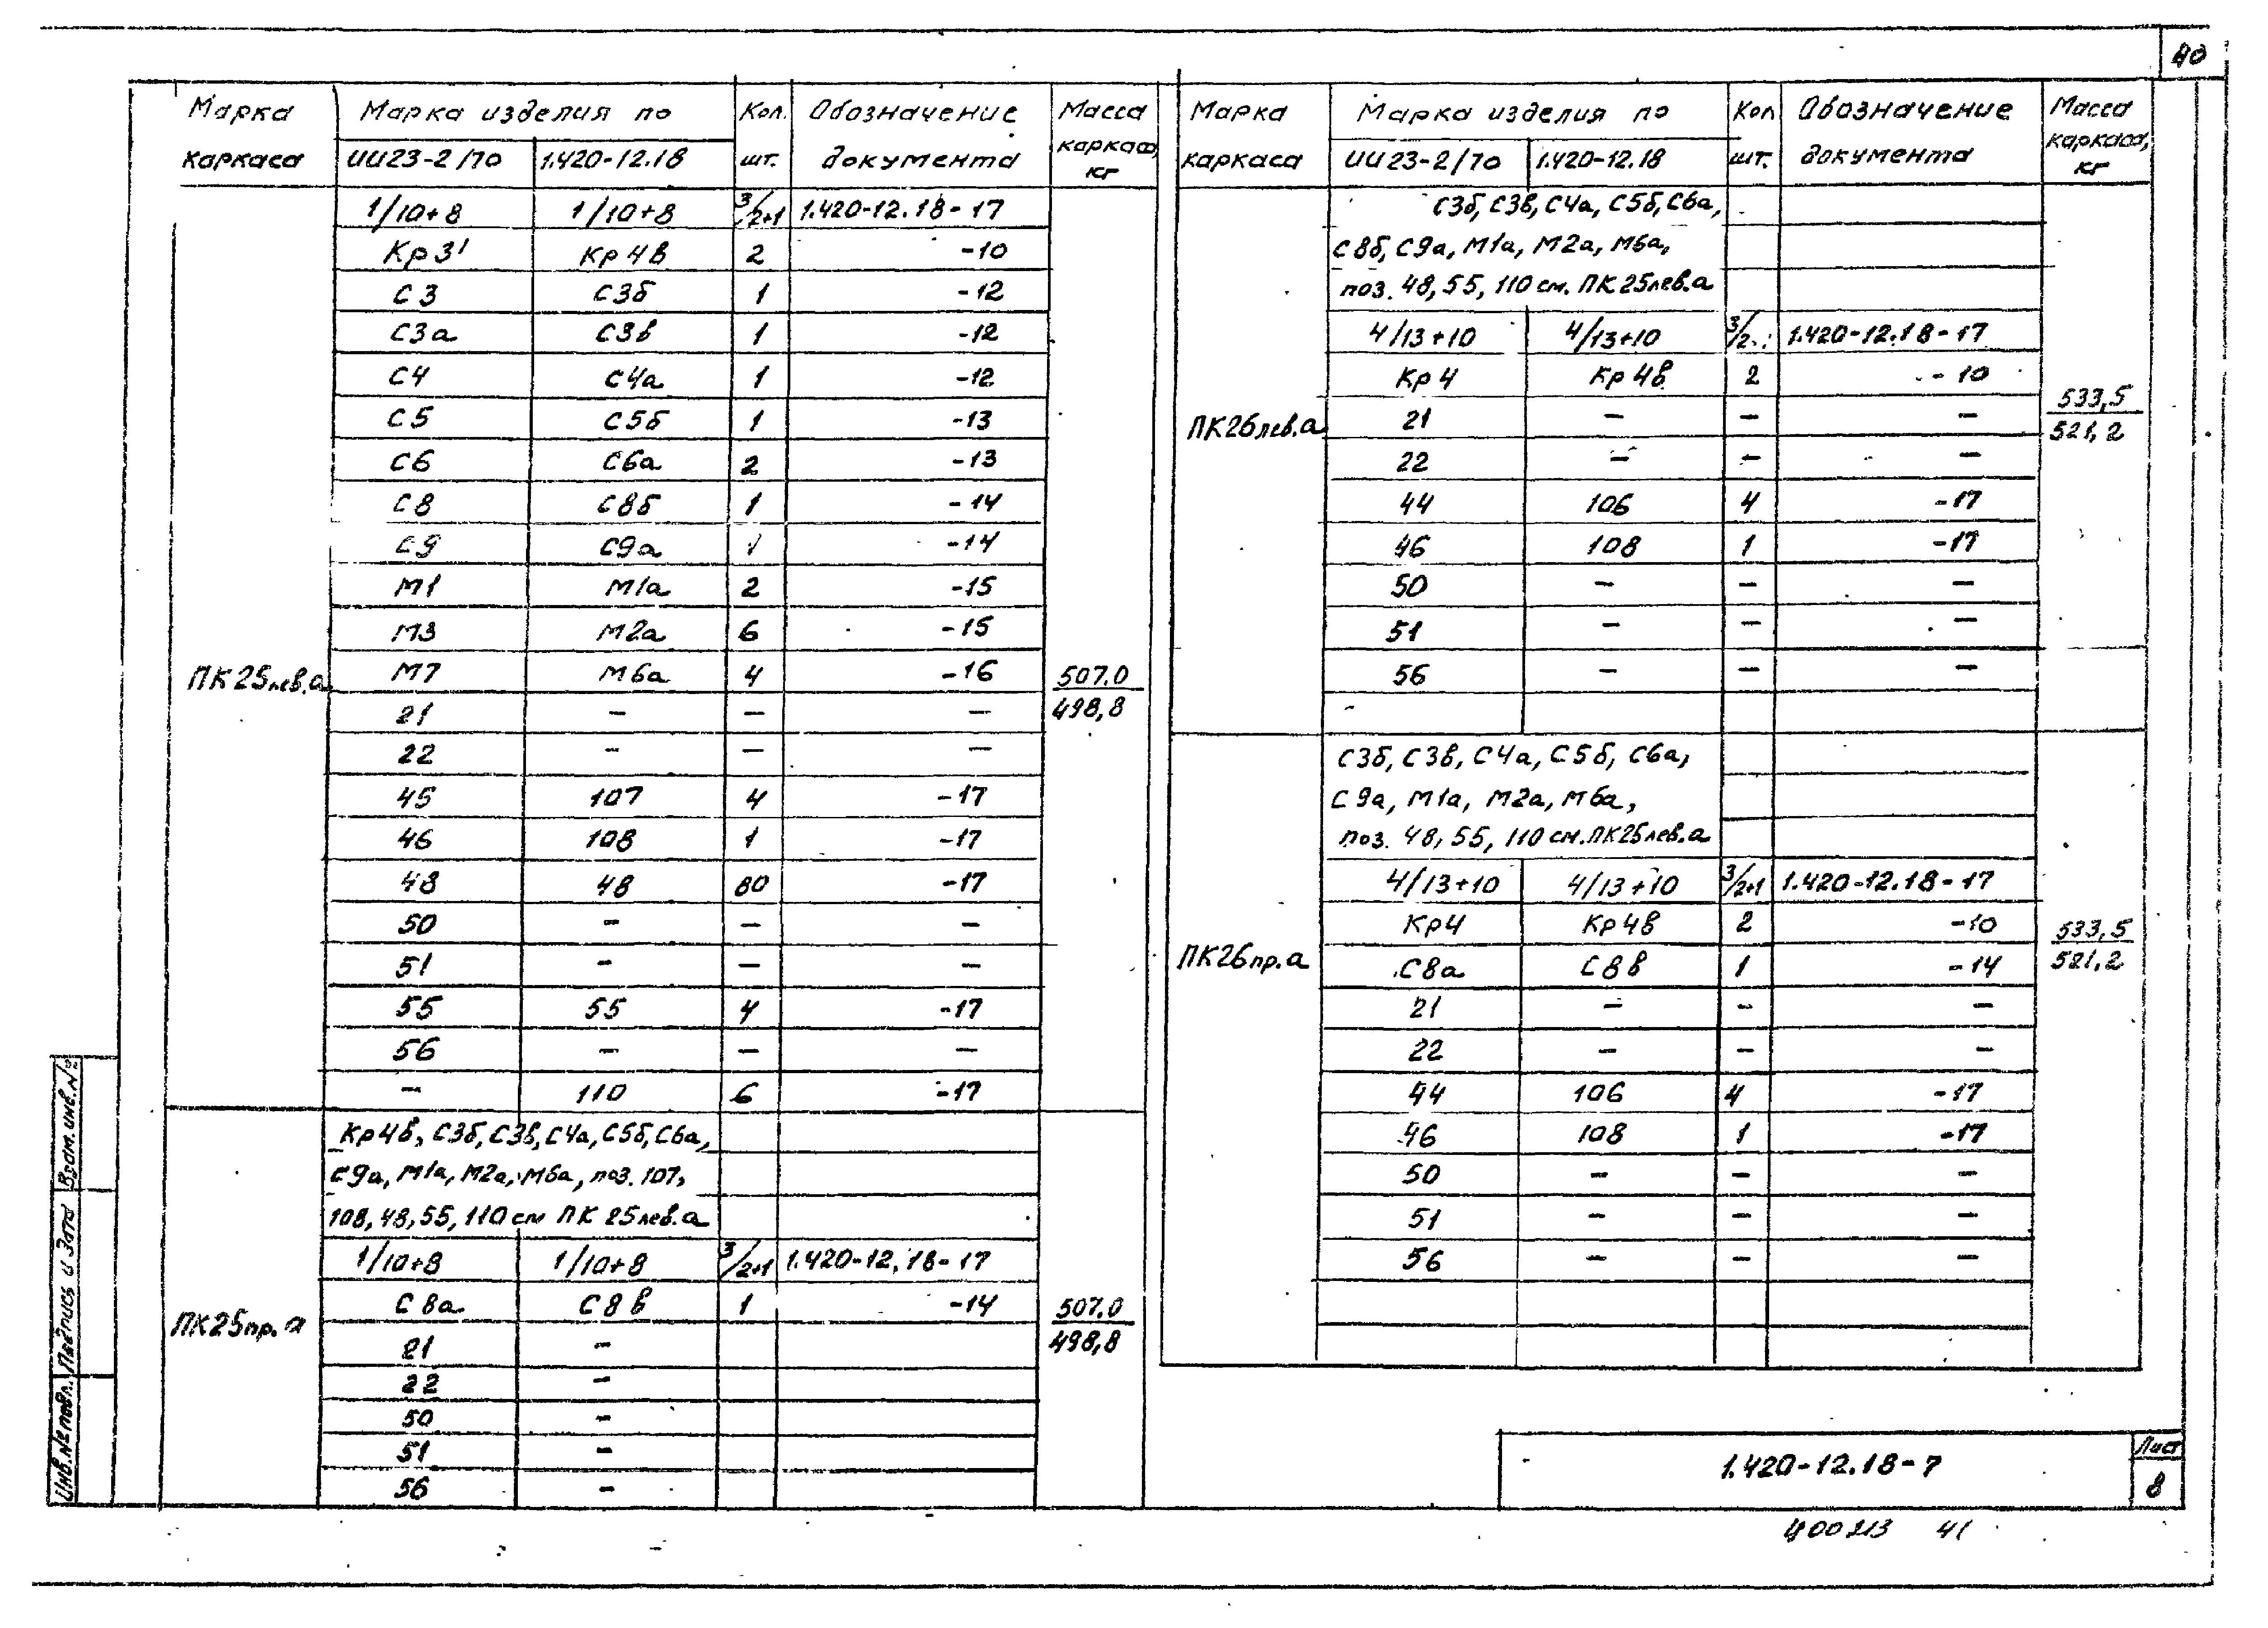 40
Марка каркаса | Марка изделия по | Кол. шт. | Обозначение документа | Масса каркаса, кг
ИИ23-2/70 | 1.420-12.18
ПК25лев.а
1/10+8 | 1/10+8 | 3/2+1 | 1.420-12.18-17
Кр3' | Кр4в | 2 | -10
С3 | С3б | 1 | -12
С3а | С3в | 1 | -12
С4 | С4а | 1 | -12
С5 | С5б | 1 | -13
С6 | С6а | 2 | -13
С8 | С8б | 1 | -14
С9 | С9а | 1 | -14
М1 | М1а | 2 | -15
М3 | М2а | 6 | -15
М7 | М6а | 4 | -16
507.0
498,8
21 | – | – | –
22 | – | – | –
45 | 107 | 4 | -17
46 | 108 | 1 | -17
48 | 48 | 80 | -17
50 | – | – | –
51 | – | – | –
55 | 55 | 4 | -17
56 | – | – | –
– | 110 | 6 | -17
ПК25пр.а
Кр4в, С3б, С3в, С4а, С5б, С6а,
С9а, М1а, М2а, М6а, поз. 107,
108, 48, 55, 110 см ПК 25лев.а
1/10+8 | 1/10+8 | 3/2+1 | 1.420-12.18-17
С8а | С8в | 1 | -14
507.0
498,8
21 | –
22 | –
50 | –
51 | –
56 | –
Марка каркаса | Марка изделия по | Кол шт. | Обозначение документа | Масса каркаса, кг
ИИ23-2/70 | 1.420-12.18
ПК26лев.а
С3б, С3в, С4а, С5б, С6а,
С8б, С9а, М1а, М2а, М6а,
поз. 48, 55, 110 см. ПК25лев.а
4/13+10 | 4/13+10 | 3/2 | 1.420-12.18-17
Кр4 | Кр4в | 2 | -10
533,5
521,2
21 | – | – | –
22 | – | – | –
44 | 106 | 4 | -17
46 | 108 | 1 | -17
50 | – | – | –
51 | – | – | –
56 | – | – | –
ПК26пр.а
С3б, С3в, С4а, С5б, С6а,
С9а, М1а, М2а, М6а,
поз. 48, 55, 110 см. ПК25лев.а
4/13+10 | 4/13+10 | 3/2+1 | 1.420-12.18-17
Кр4 | Кр4в | 2 | -10
533,5
521,2
С8а | С8в | 1 | -14
21 | – | – | –
22 | – | – | –
44 | 106 | 4 | -17
46 | 108 | 1 | -17
50 | – | – | –
51 | – | – | –
56 | – | – | –
Инв.№ подл. | Подпись и дата | Взам.инв.№
1.420-12.18-7
Лист
8
Ц00213 41